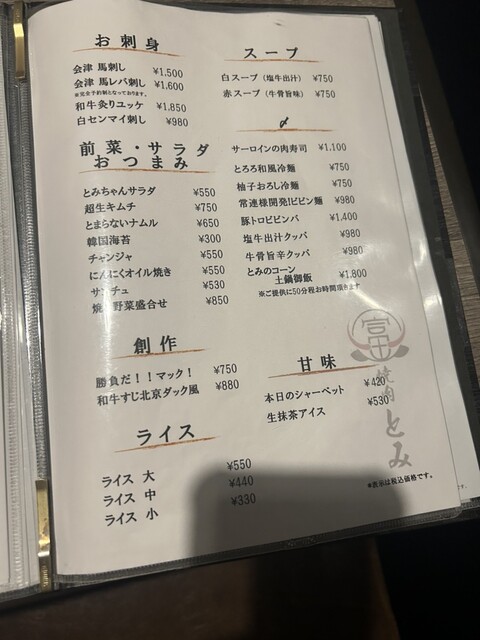 お刺身
会津 馬刺し ¥1,500
会津 馬レバ刺し ¥1,600
※完全予約制となっております。
和牛炙りユッケ ¥1,850
白センマイ刺し ¥980
前菜・サラダ
おつまみ
とみちゃんサラダ ¥550
超生キムチ ¥750
とまらないナムル ¥650
韓国海苔 ¥300
チャンジャ ¥550
にんにくオイル焼き ¥550
サンチュ ¥530
焼き野菜盛合せ ¥850
創作
勝負だ!!マック! ¥750
和牛すじ北京ダック風 ¥880
ライス
ライス 大 ¥550
ライス 中 ¥440
ライス 小 ¥330
スープ
白スープ(塩牛出汁) ¥750
赤スープ(牛骨旨味) ¥750
〆
サーロインの肉寿司 ¥1,100
とろろ和風冷麺 ¥750
柚子おろし冷麺 ¥750
常連様開発!ビビン麺 ¥980
豚トロビビンバ ¥1,400
塩牛出汁クッパ ¥980
牛骨旨辛クッパ ¥980
とみのコーン
土鍋御飯 ¥1,800
※ご提供に50分程お時間頂きます
甘味
本日のシャーベット ¥420
生抹茶アイス ¥530
富
焼肉とみ
※表示は税込価格です。